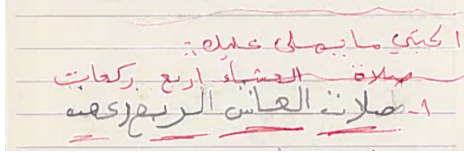 اكتبي ما يملى عليك :
صلاة العشاء اربع ركعات
١- صلات العاس الربع ركعت